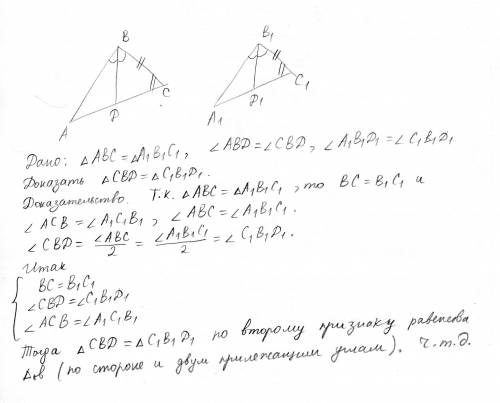 B
B₁
C
C₁
A
D
A₁
D₁
Дано: △ABC = △A₁B₁C₁, ∠ABD = ∠CBD, ∠A₁B₁D₁ = ∠C₁B₁D₁
Доказать △CBD = △C₁B₁D₁.
Доказательство. Т.к. △ABC = △A₁B₁C₁, то BC = B₁C₁ и
∠ACB = ∠A₁C₁B₁, ∠ABC = ∠A₁B₁C₁.
∠CBD = ∠ABC/2 = ∠A₁B₁C₁/2 = ∠C₁B₁D₁.
Итак
{ BC = B₁C₁
∠CBD = ∠C₁B₁D₁
∠ACB = ∠A₁C₁B₁
Тогда △CBD = △C₁B₁D₁ по второму признаку равенства
△ов (по стороне и двум прилежащим углам). ч.т.д.